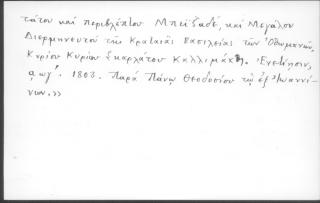 τάτου καὶ περιβλέπτου Μπεϊζαδὲ, καὶ Μεγάλου
Διερμηνευτοῦ τῆς Κραταιᾶς Βασιλείας τῶν Ὀθωμανῶν,
Κυρίου Κυρίου Σκαρλάτου Καλλιμάχη. Ἐνετίησιν,
αωγʹ. 1803. Παρὰ Πάνῳ Θεοδοσίου τῷ ἐξ Ἰωαννί-
νων.>>